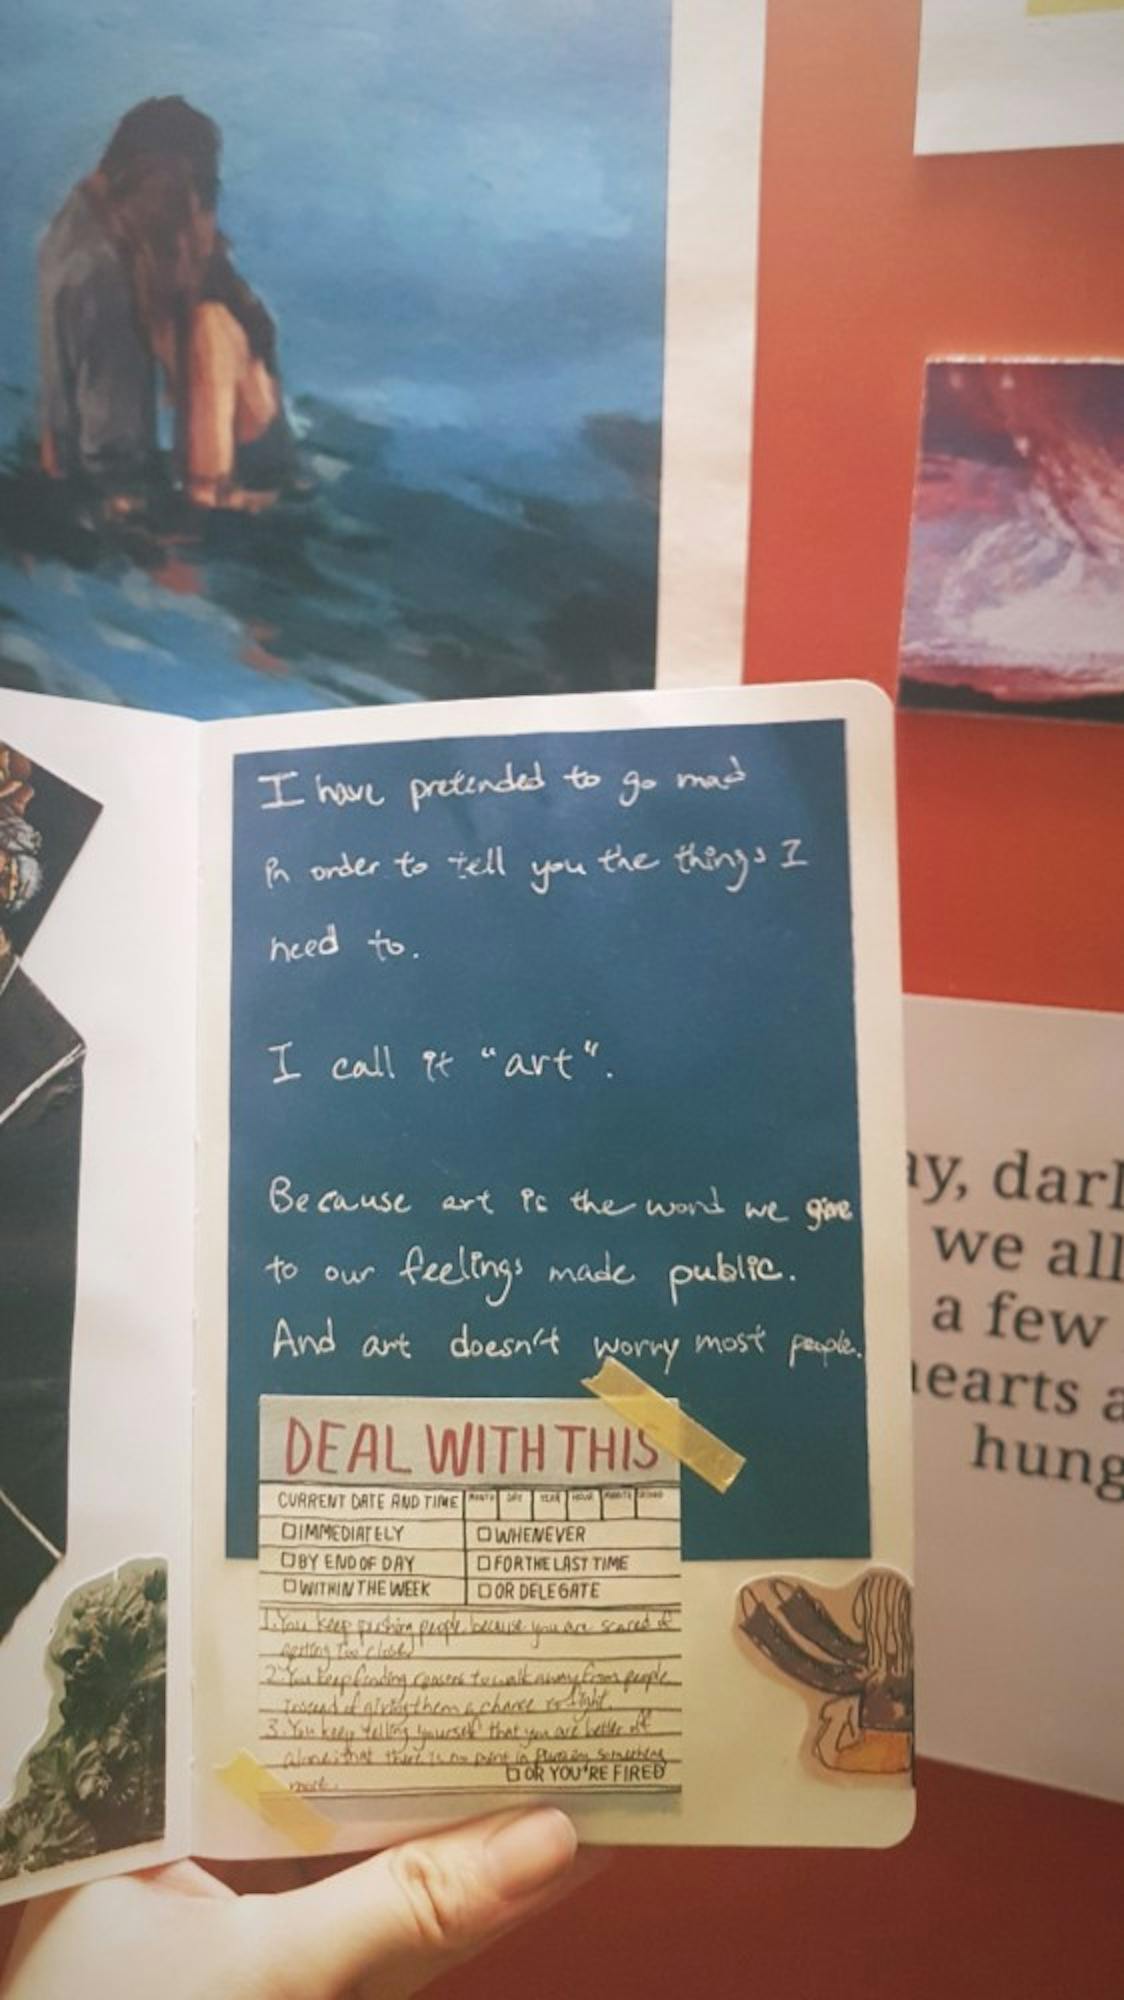 I have pretended to go mad
in order to tell you the things I
need to.
I call it "art".
Because art is the word we give
to our feelings made public.
And art doesn't worry most people.
DEAL WITH THIS
CURRENT DATE AND TIME MONTH DAY YEAR HOUR MINUTE SECOND
☐ IMMEDIATELY ☐ WHENEVER
☐ BY END OF DAY ☐ FOR THE LAST TIME
☐ WITHIN THE WEEK ☐ OR DELEGATE
1. You keep pushing people because you are scared of
getting too close.
2. You keep finding reasons to walk away from people
instead of giving them a chance to fight.
3. You keep telling yourself that you are better off
alone; that there is no point in something
more.
☐ OR YOU'RE FIRED
ay, darl
we all
a few
hearts a
hung